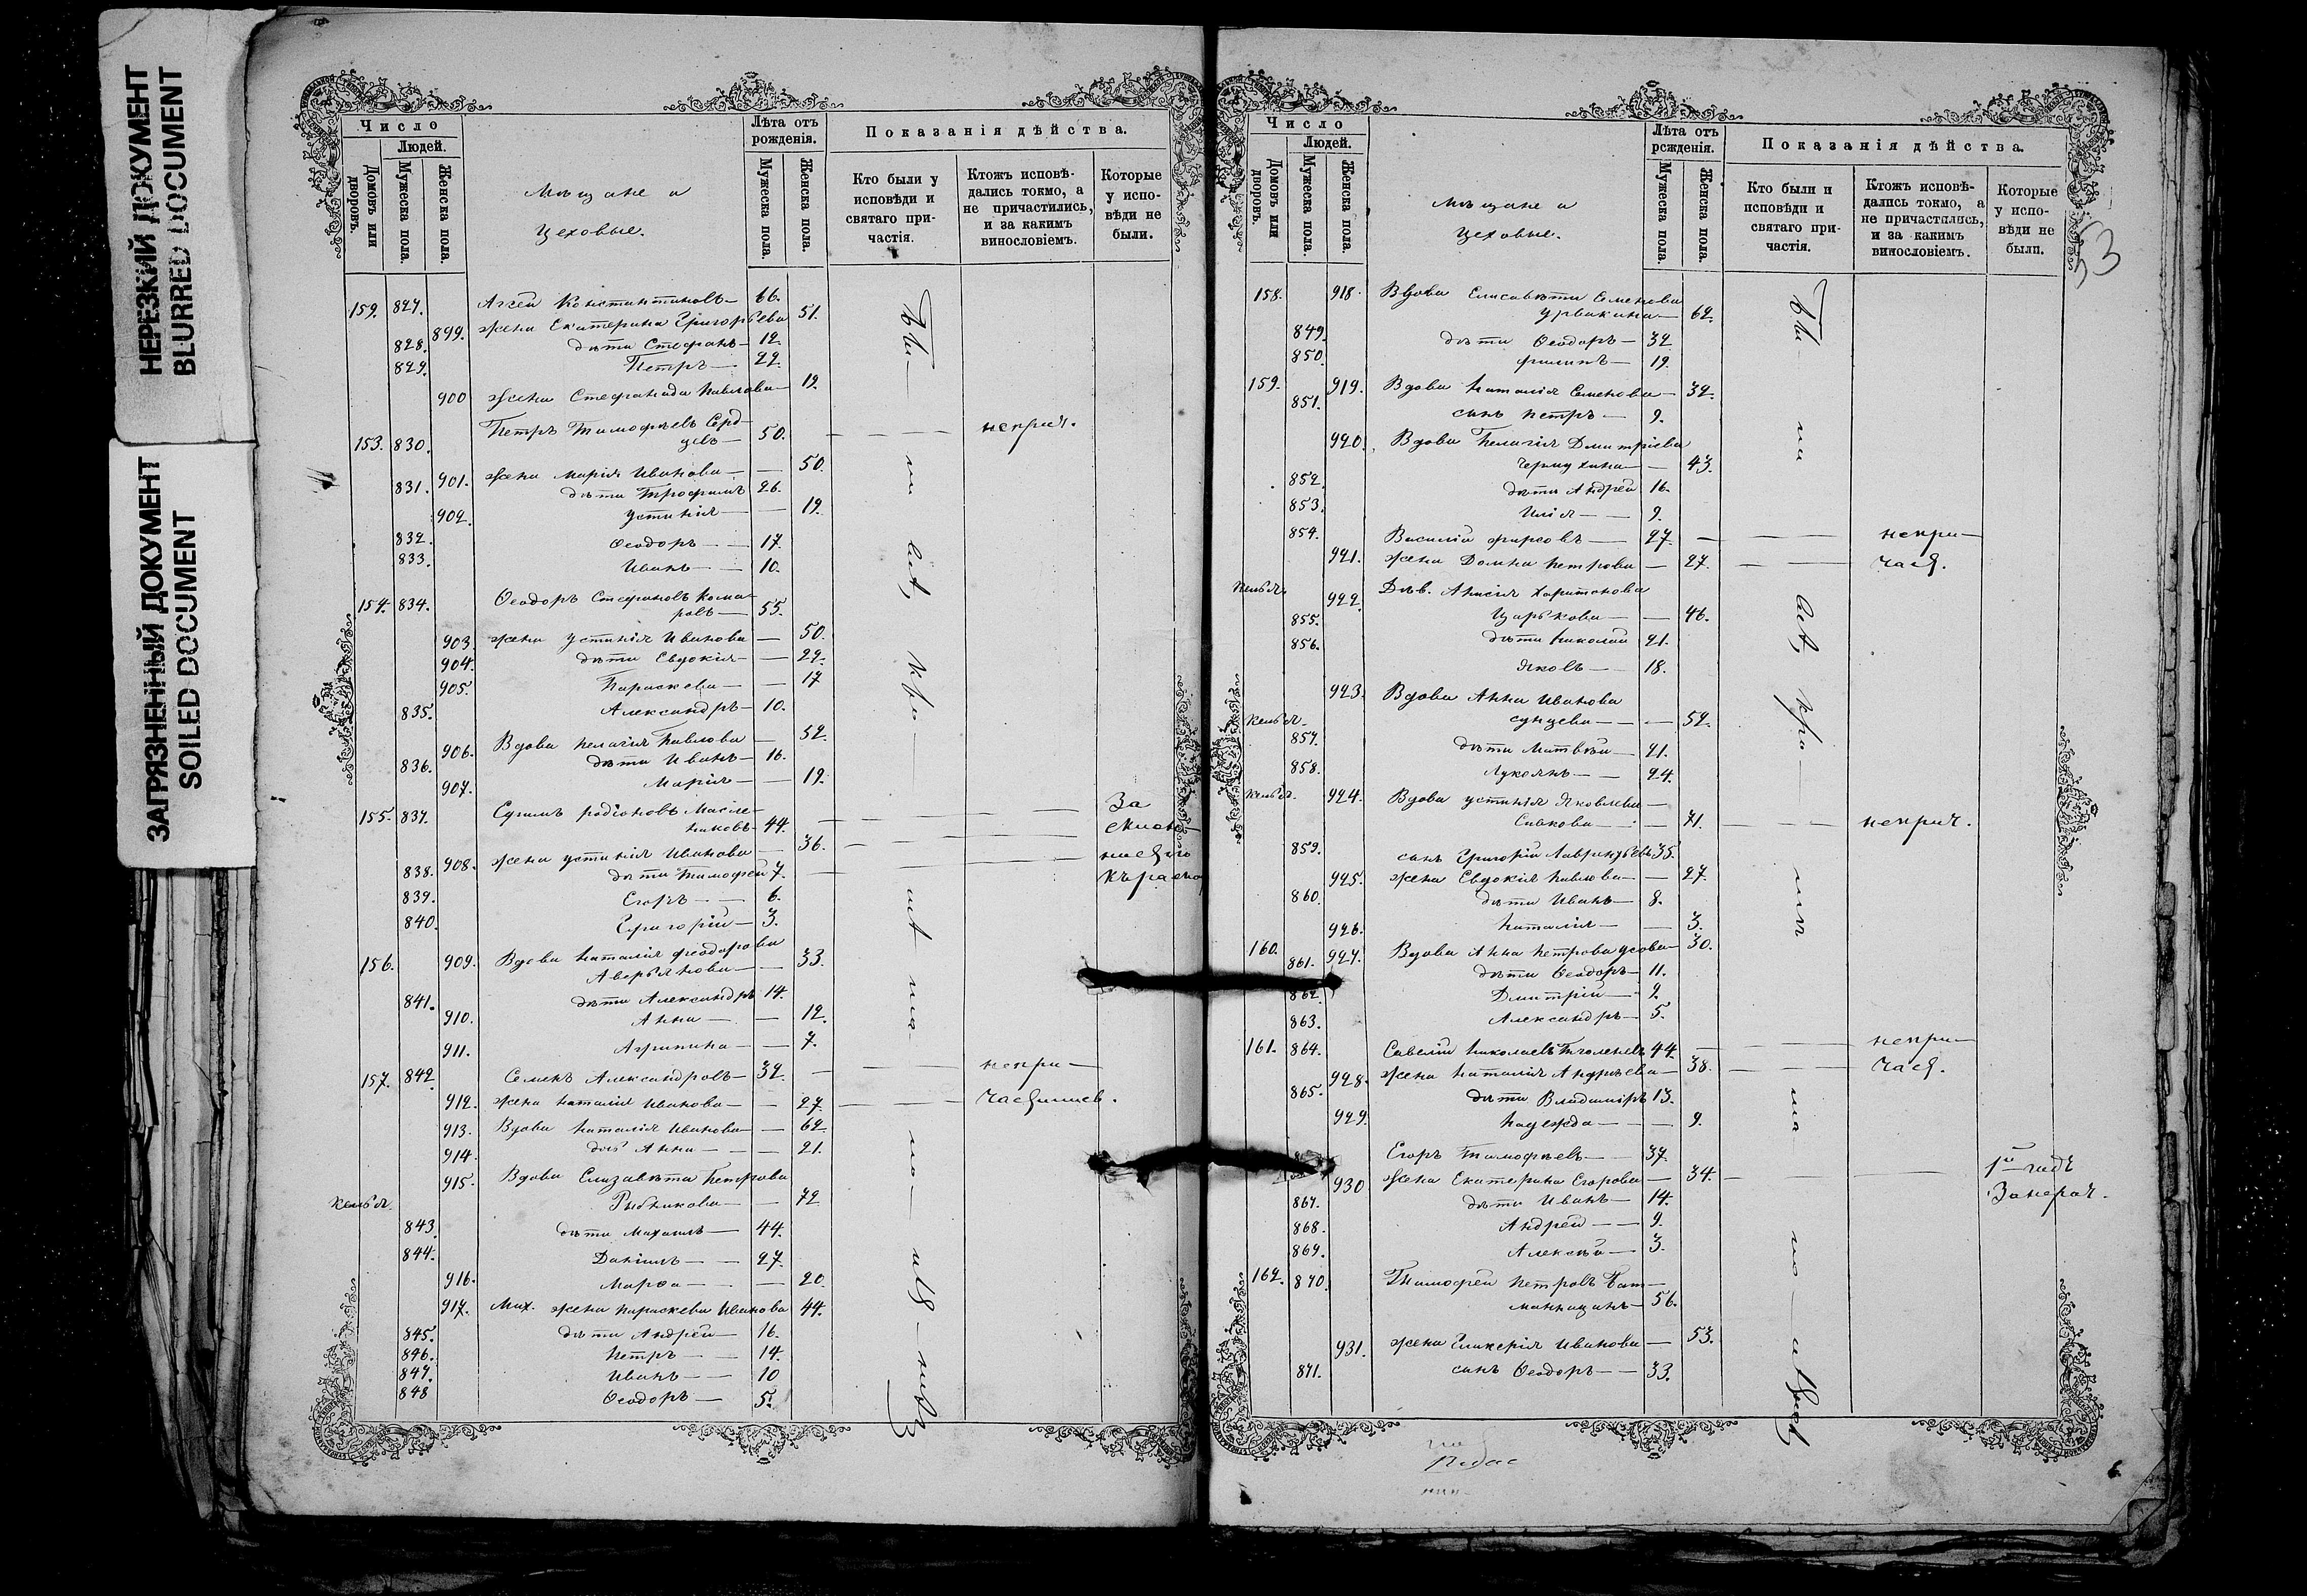 НЕРЕЗКИЙ ДОКУМЕНТ
BLURRED DOCUMENT
ЗАГРЯЗНЕННЫЙ ДОКУМЕНТ
SOILED DOCUMENT
Число
Людей.
Домовъ или дворовъ.
Мужеска пола.
Женска пола.
Мѣщане и
цеховые.
Лѣта отъ рожденія.
Мужеска пола.
Женска пола.
Показанія дѣйства.
Кто были у исповѣди и святаго причастія.
Ктожъ исповѣдались токмо, а не причастились, и за какимъ винословіемъ.
Которые у исповѣди не были.
159. 827. Константиновъ — 66.
899. жена Екатерина Григорьева 51.
828. дѣти Стефанъ — 12.
829. Петръ — 22.
900 жена Стефанида Павлова — 19.
Петръ Тимофѣевъ Серд-
153. 830. цевъ — 50. — — — неприч.
901. жена Марія Иванова — — 50.
831. дѣти Трофимъ 26.
902. Устинія — — 19.
832. Ѳеодоръ — — 17.
833. Иванъ — — 10.
154. 834. Ѳеодоръ Стефановъ Кома-
ровъ — 55.
903. жена Устинія Иванова — 50.
904. дѣти Евдокія — — 22.
905. Параскева — — 17
835. Александръ — 10.
906. Вдова Пелагія Павлова — 52
836. дѣти Иванъ — 16.
907. Марія — — 19.
155. 837. Родіоновъ Масле-
никовъ — 44. — — — За
908. жена Устинія Иванова — 36. — — —
838. дѣти Тимофей 7.
839. Егоръ — — 6.
840. Григорій — 3.
156. 909. Вдова Наталія Феодорова
Аверьянова — — 33.
841. дѣти Александръ 14.
910. Анна — — 12.
911. Агрипина — — 7.
157. 842. Семенъ Александровъ — 32. — — непри —
912. жена Наталія Иванова — — 27. — —
913. Вдова Наталія Иванова — — 62
914. Анна — — — 21.
915. Вдова Елизавѣта Петрова
Келья. Рыбникова — — 72
843. дѣти Михаилъ — 44.
844. Даніилъ — — 27.
916. Марѳа — — — 20.
917. Мих. жена Параскева Иванова 44.
845. дѣти Андрей — 16.
846. Петръ — — 14.
847. Иванъ — — 10
848 Ѳеодоръ — 5.
53
Число
Людей.
Домовъ или дворовъ.
Мужеска пола.
Женска пола.
Мѣщане и
цеховые.
Лѣта отъ рсжденія.
Мужеска пола.
Женска пола.
Показанія дѣйства.
Кто были и исповѣди и святаго причастія.
Ктожъ исповѣдались токмо, а не причастились, и за какимъ винословіемъ.
Которые у исповѣди не были.
158. 918. Вдова Елисавѣта Семенова
Урвакина — 62.
849. дѣти Ѳеодоръ — 32
850. Филипъ — 19.
159. 919. Вдова Наталія Семенова — 32.
851. сынъ Петръ — 9.
920. Вдова Пелагія Дмитріева
— 43.
852. дѣти Андрей 16.
853. Илія — — 9.
854. Василій Фирсовъ — 27. — — непри —
921. жена Домна Петрова — 27. — — част.
Келья. 922. Дѣв. Анисія Харитонова
Царькова — — 46.
855. дѣти Николай 21.
856. Яковъ — — 18.
923. Вдова Анна Иванова
Келья. Сунцева — — 52.
857. дѣти Матвѣй — 21.
858. Лукоянъ — — 24.
Келья. 924. Вдова Устинія Яковлева —
Сивкова — — 71. — — неприч.
859. сынъ Григорій Лаврентьевъ 35.
925. жена Евдокія Павлова — — 27.
860. дѣти Иванъ — 8.
926. Наталія — — 3.
160. 927. Вдова Анна Петрова Усова — 30.
861. дѣти Ѳеодоръ — 11.
862. Дмитрій — 9.
863. Александръ — 5.
161. 864. Савелій Николаевъ 44. — — непри —
928. жена Наталія Андреева — 38. — — част.
865. дѣти Владиміръ 13.
929. Надежда — — — 9.
Егоръ Тимофѣевъ — — 37.
930 жена Екатерина Егорова — 34. — — —
867. дѣти Иванъ — 14.
868. Андрей — — 9.
869. Алексѣй — 3.
162. 870. Тимофей Петровъ
— 56.
931. жена Гликерія Иванова — 53.
871. сынъ Ѳеодоръ — — 33.